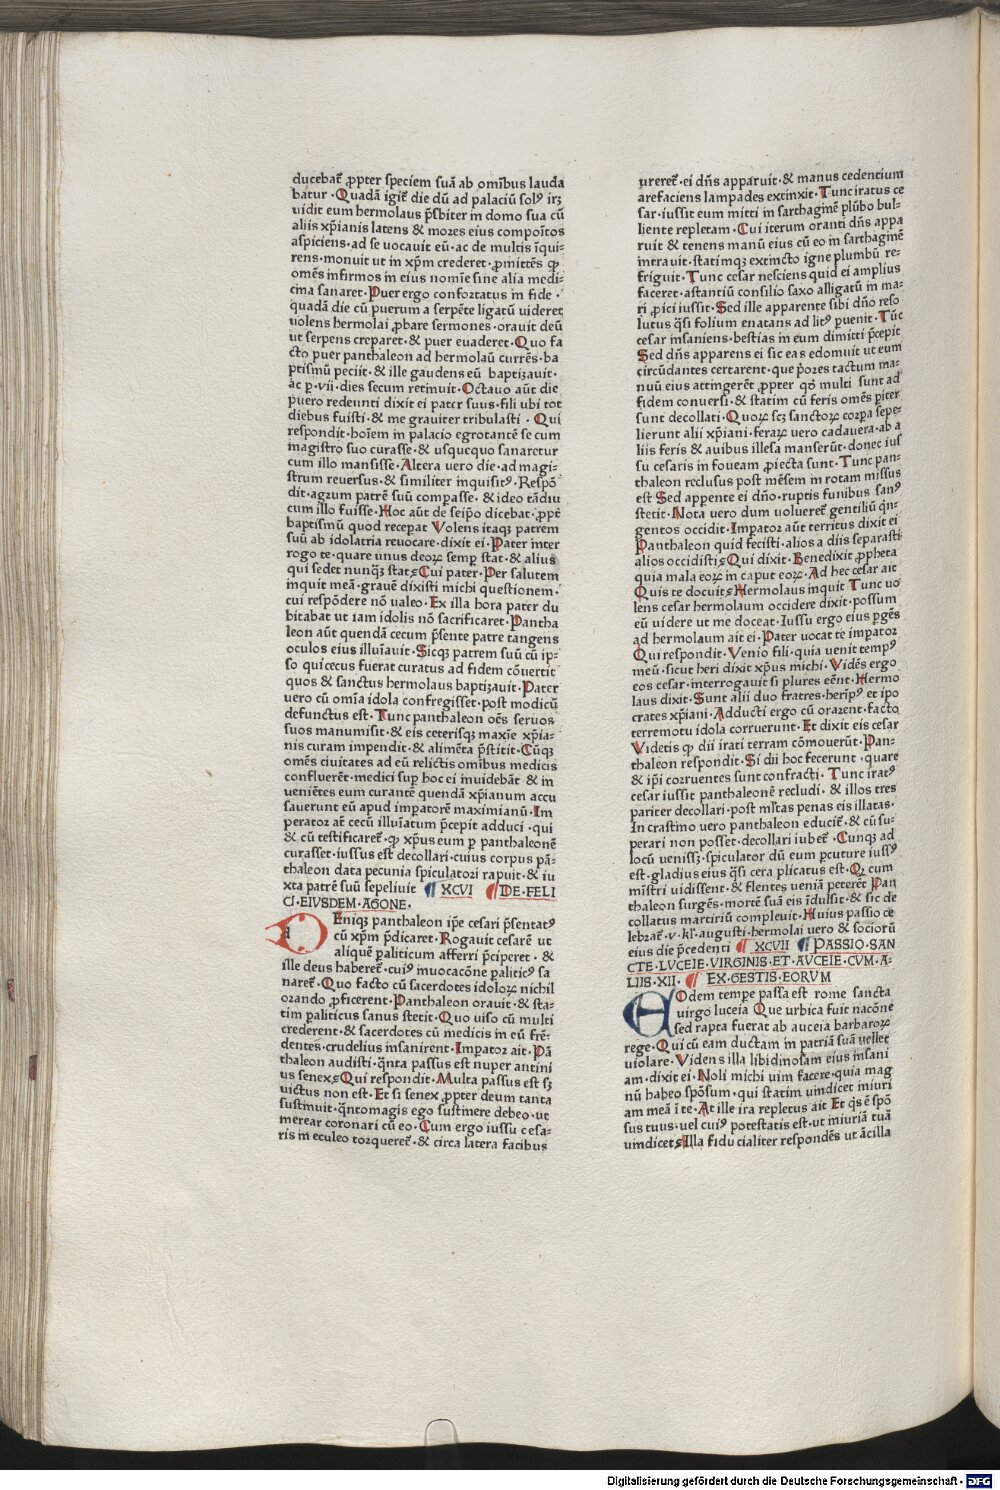 ducebat᷑ ꝓpter speciem suã ab omĩbus lauda
batur · Quadã igit᷑ die dũ ad palaciũ solꝰ irꝫ
uidit eum hermolaus p̃sbiter in domo sua cũ
aliis xp̃ianis latens & mores eius compoĩtos
aspiciens · ad se uocauit eũ · ac de multis ĩqui⸗
rens · monuit ut in xp̃m crederet · ꝓmittẽs ꝙ
omẽs infirmos in eius nomĩe sine alia medi⸗
cina sanaret · Puer ergo confortatus in fide ·
quadã die cũ puerum a serpẽte ligatũ uideret
uolens hermolai ꝓbare sermones · orauit deũ
ut serpens creparet · & puer euaderet · Quo fa
cto puer panthaleon ad hermolaũ currẽs · ba
ptismũ peciit · & ille gaudens eũ baptizauit ·
ac ꝑ · vii · dies secum retinuit · Octauo aũt die
puero redeunti dixit ei pater suus · fili ubi tot
diebus fuisti · & me grauiter tribulasti · Qui
respondit · hoĩem in palacio egrotantẽ se cum
magistro suo curasse · & usquequo sanaretur
cum illo mansisse · Altera uero die · ad magi⸗
strum reuersus · & similiter inquisitꝰ · Respõ
dit · agrum patrẽ suũ compasse · & ideo tãdiu
cum illo fuisse · Hoc aũt de seip̃o dicebat · ꝓpt᷑
baptismũ quod recepat Volens itaqꝫ patrem
suũ ab idolatria reuocare · dixit ei · Pater inter
rogo te · quare unus deoꝝ semꝑ stat · & alius
qui sedet nunqꝫ stat · Cui pater · Per salutem
inquit meã · grauẽ dixisti michi questionem ·
cui respõdere nõ ualeo · Ex illa hora pater du
bitabat ut iam idolis nõ sacrificaret · Pantha
leon aũt quendã cecum p̃sente patre tangens
oculos eius illuĩauit · Sicqꝫ patrem suũ cũ ip⸗
so qui cecus fuerat curatus ad fidem cõuertit
quos & sanctus hermolaus baptizauit · Pater
uero cũ omĩa idola confregisset · post modicũ
defunctus est · Tunc panthaleon oẽs seruos
suos manumisit · & eis ceterisqꝫ maxĩe xp̃ia⸗
nis curam impendit · & alimẽta p̃stitit · Cũqꝫ
omẽs ciuitates ad eũ relictis omĩbus medicis
confluerẽt · medici suꝑ hoc ei inuidebãt & in
ueniẽtes eum curantẽ quendã xp̃ianum accu
sauerunt eũ apud imꝑatorẽ maximianũ · Im
perator at᷑ cecũ illuĩatum p̃cepit adduci · qui
& cũ testificaret᷑ · ꝙ xp̃us eum ꝑ panthaleonẽ
curasset · iussus est decollari · cuius corpus pã⸗
thaleon data pecunia spiculatori rapuit · & iu
xta patrẽ suũ sepeliuit ¶ XCVI ¶ DE · FELI
CI · EIVSDEM · AGONE ·
DEniqꝫ panthaleon ip̃e cesari p̃sentatꝰ
cũ xp̃m p̃dicaret · Rogauit cesarẽ ut
aliquẽ paliticum afferri p̃ciperet · &
ille deus haberet᷑ · cuiꝰ inuocacõne paliticꝰ sa
naret᷑ · Quo facto cũ sacerdotes idoloꝝ nichil
orando ꝓficerent · Panthaleon orauit · & sta⸗
tim paliticus sanus stetit · Quo uiso cũ multi
crederent · & sacerdotes cũ medicis in eũ frẽ⸗
dentes · crudelius insanirent · Imꝑator ait · Pã
thaleon audisti · q̃nta passus est nuper antini
us senex · Qui respondit · Multa passus est sꝫ
uictus non est · Et si senex ꝓpter deum tanta
sustinuit · q̃ntomagis ego sustinere debeo · ut
merear coronari cũ eo · Cum ergo iussu cesa⸗
ris in eculeo torqueret᷑ · & circa latera facibus
ureret᷑ · ei dñs apparuit · & manus cedentium
arefaciens lampades extinxit · Tunc iratus ce
sar · iussit eum mitti in sarthaginẽ plũbo bul⸗
liente repletam · Cui iterum oranti dñs appa
ruit & tenens manũ eius cũ eo in sarthaginẽ
intrauit · statimqꝫ extincto igne plumbũ re⸗
friguit · Tunc cesar nesciens quid ei amplius
faceret · astantiũ consilio saxo alligatũ in ma⸗
ri ꝓici iussit · Sed ille apparente sibi dño reso
lutus q̃si folium enatans ad litꝰ ꝑuenit · Tũc
cesar insaniens · bestias in eum dimitti p̃cepit
Sed dñs apparens ei sic eas edomuit ut eum
circũdantes certarent · que p̃ores tactum ma⸗
nuũ eius attingerẽt ꝓpter qd̃ multi sunt ad
fidem conuersi · & statim cũ feris omẽs ꝑiter
sunt decollati · Quoꝝ scꝫ sanctoꝝ corpa sepe⸗
lierunt alii xp̃iani · feraꝝ uero cadauera · ab a
liis feris & auibus illesa manserũt · donec ius
su cesaris in foueam ꝓiecta sunt · Tunc pan⸗
thaleon reclusus post mẽsem in rotam missus
est Sed appente ei dño · ruptis funibus sanꝰ
stetit · Nota uero dum uolueret᷑ gentiliũ q̃n⸗
gentos occidit · Imꝑator aũt territus dixit ei
Panthaleon quid fecisti · alios a diis separasti
alios occidisti · Qui dixit · Benedixit ꝓpheta
quia mala eoꝝ in caput eoꝝ · Ad hec cesar ait
Quis te docuit · Hermolaus inquit Tunc uo
lens cesar hermolaum occidere dixit · possum
eũ uidere ut me doceat · Iussu ergo eius ꝑgẽs
ad hermolaum ait ei · Pater uocat te imꝑator
Qui respondit · Venio fili · quia uenit tempꝰ
meũ · sicut heri dixit xp̃us michi · Vidẽs ergo
eos cesar · interrogauit si plures eẽnt · Hermo
laus dixit · Sunt alii duo fratres · herĩpꝰ et ipo
crates xp̃iani · Adducti ergo cũ orarent · facto
terremotu idola corruerunt · Et dixit eis cesar
Videtis ꝙ dii irati terram cõmouerũt · Pan⸗
thaleon respondit · Si dii hoc fecerunt · quare
& ip̃i corruentes sunt confracti · Tunc iratꝰ
cesar iussit panthaleonẽ recludi · & illos tres
pariter decollari · post ml̃tas penas eis illatas ·
In crastino uero panthaleon educit᷑ · & cũ su⸗
perari non posset · decollari iubet᷑ · Cunqꝫ ad
locũ uenissꝫ · spiculator dũ eum ꝑcutere iussꝰ
est · gladius eius q̃si cera plicatus est · Qꝫ cum
mĩstri uidissent · & flentes ueniã peterẽt Pan
thaleon surgẽs · mortẽ suã eis ĩdulsit · & sic de
collatus martiriũ compleuit · Huius passio ce
lebrat᷑ · v · kl᷑ · augusti · hermolai uero & sociorũ
eius die p̃cedenti ¶ XCVII ¶ PASSIO · SAN
CTE · LVCEIE · VIRGINIS · ET · AVCEIE · CVM · A⸗
LIIS · XII · ¶ EX · GESTIS · EORVM
EOdem temꝑe passa est rome sancta
uirgo luceia Que urbica fuit nacõne
sed rapta fuerat ab auceia barbaroꝝ
rege · Qui cũ eam ductam in patriã suã uellet
uiolare · Videns illa libidinosam eius insani
am · dixit ei · Noli michi uim facere · quia mag
nũ habeo spõsum · qui statim uindicet iniuri
am meã ĩ te · At ille ira repletus ait Et q̃s ẽ spõ
sus tuus · uel cuiꝰ potestatis est · ut iniuriã tuã
uindicet · Illa fiducialiter respondẽs ut ãcilla
Digitalisierung gefördert durch die Deutsche Forschungsgemeinschaft · DFG